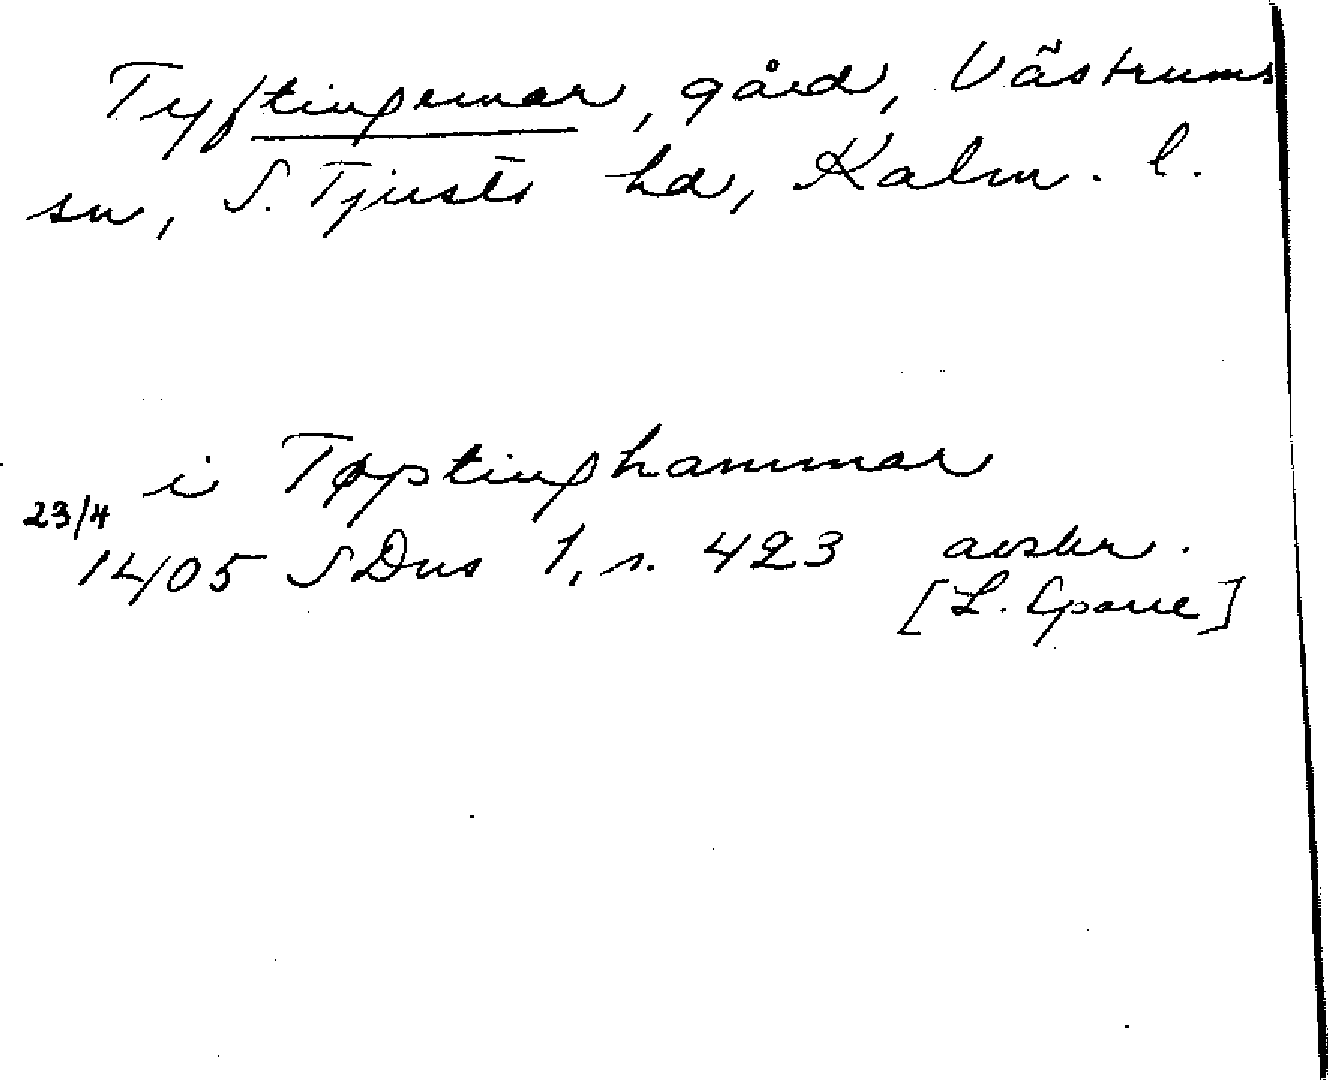 Tyftingemar, gård, Västrums
sn, S. Tjusts hd, Kalm. l.
i Tøptinghammar
23/4
1405 SDns 1, s. 423 avskr.
[L. Sparre]